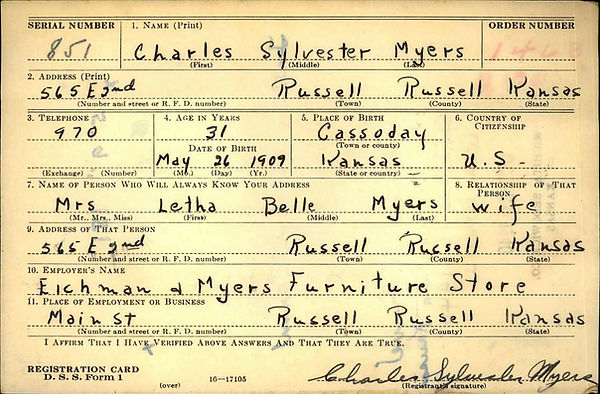 SERIAL NUMBER 1. NAME (Print) ORDER NUMBER
851 Charles Sylvester Myers 146
(First) (Middle) (Last)
2. ADDRESS (Print)
565 E 2nd Russell Russell Kansas
(Number and street or R. F. D. number) (Town) (County) (State)
3. TELEPHONE 4. AGE IN YEARS 5. PLACE OF BIRTH 6. COUNTRY OF CITIZENSHIP
970 31 Cassoday
(Town or county)
DATE OF BIRTH
May 26 1909 Kansas U.S-
(Exchange) (Number) (Mo.) (Day) (Yr.) (State or country)
7. NAME OF PERSON WHO WILL ALWAYS KNOW YOUR ADDRESS 8. RELATIONSHIP OF THAT PERSON
Mrs Letha Belle Myers wife
(Mr., Mrs., Miss) (First) (Middle) (Last)
9. ADDRESS OF THAT PERSON
565 E 2nd Russell Russell Kansas
(Number and street or R. F. D. number) (Town) (County) (State)
10. EMPLOYER'S NAME
Eichman & Myers Furniture Store
11. PLACE OF EMPLOYMENT OR BUSINESS
Main St Russell Russell Kansas
(Number and street or R. F. D. number) (Town) (County) (State)
I AFFIRM THAT I HAVE VERIFIED ABOVE ANSWERS AND THAT THEY ARE TRUE.
REGISTRATION CARD
D. S. S. Form 1 16—17105 Charles Sylvester Myers
(over) (Registrant's signature)